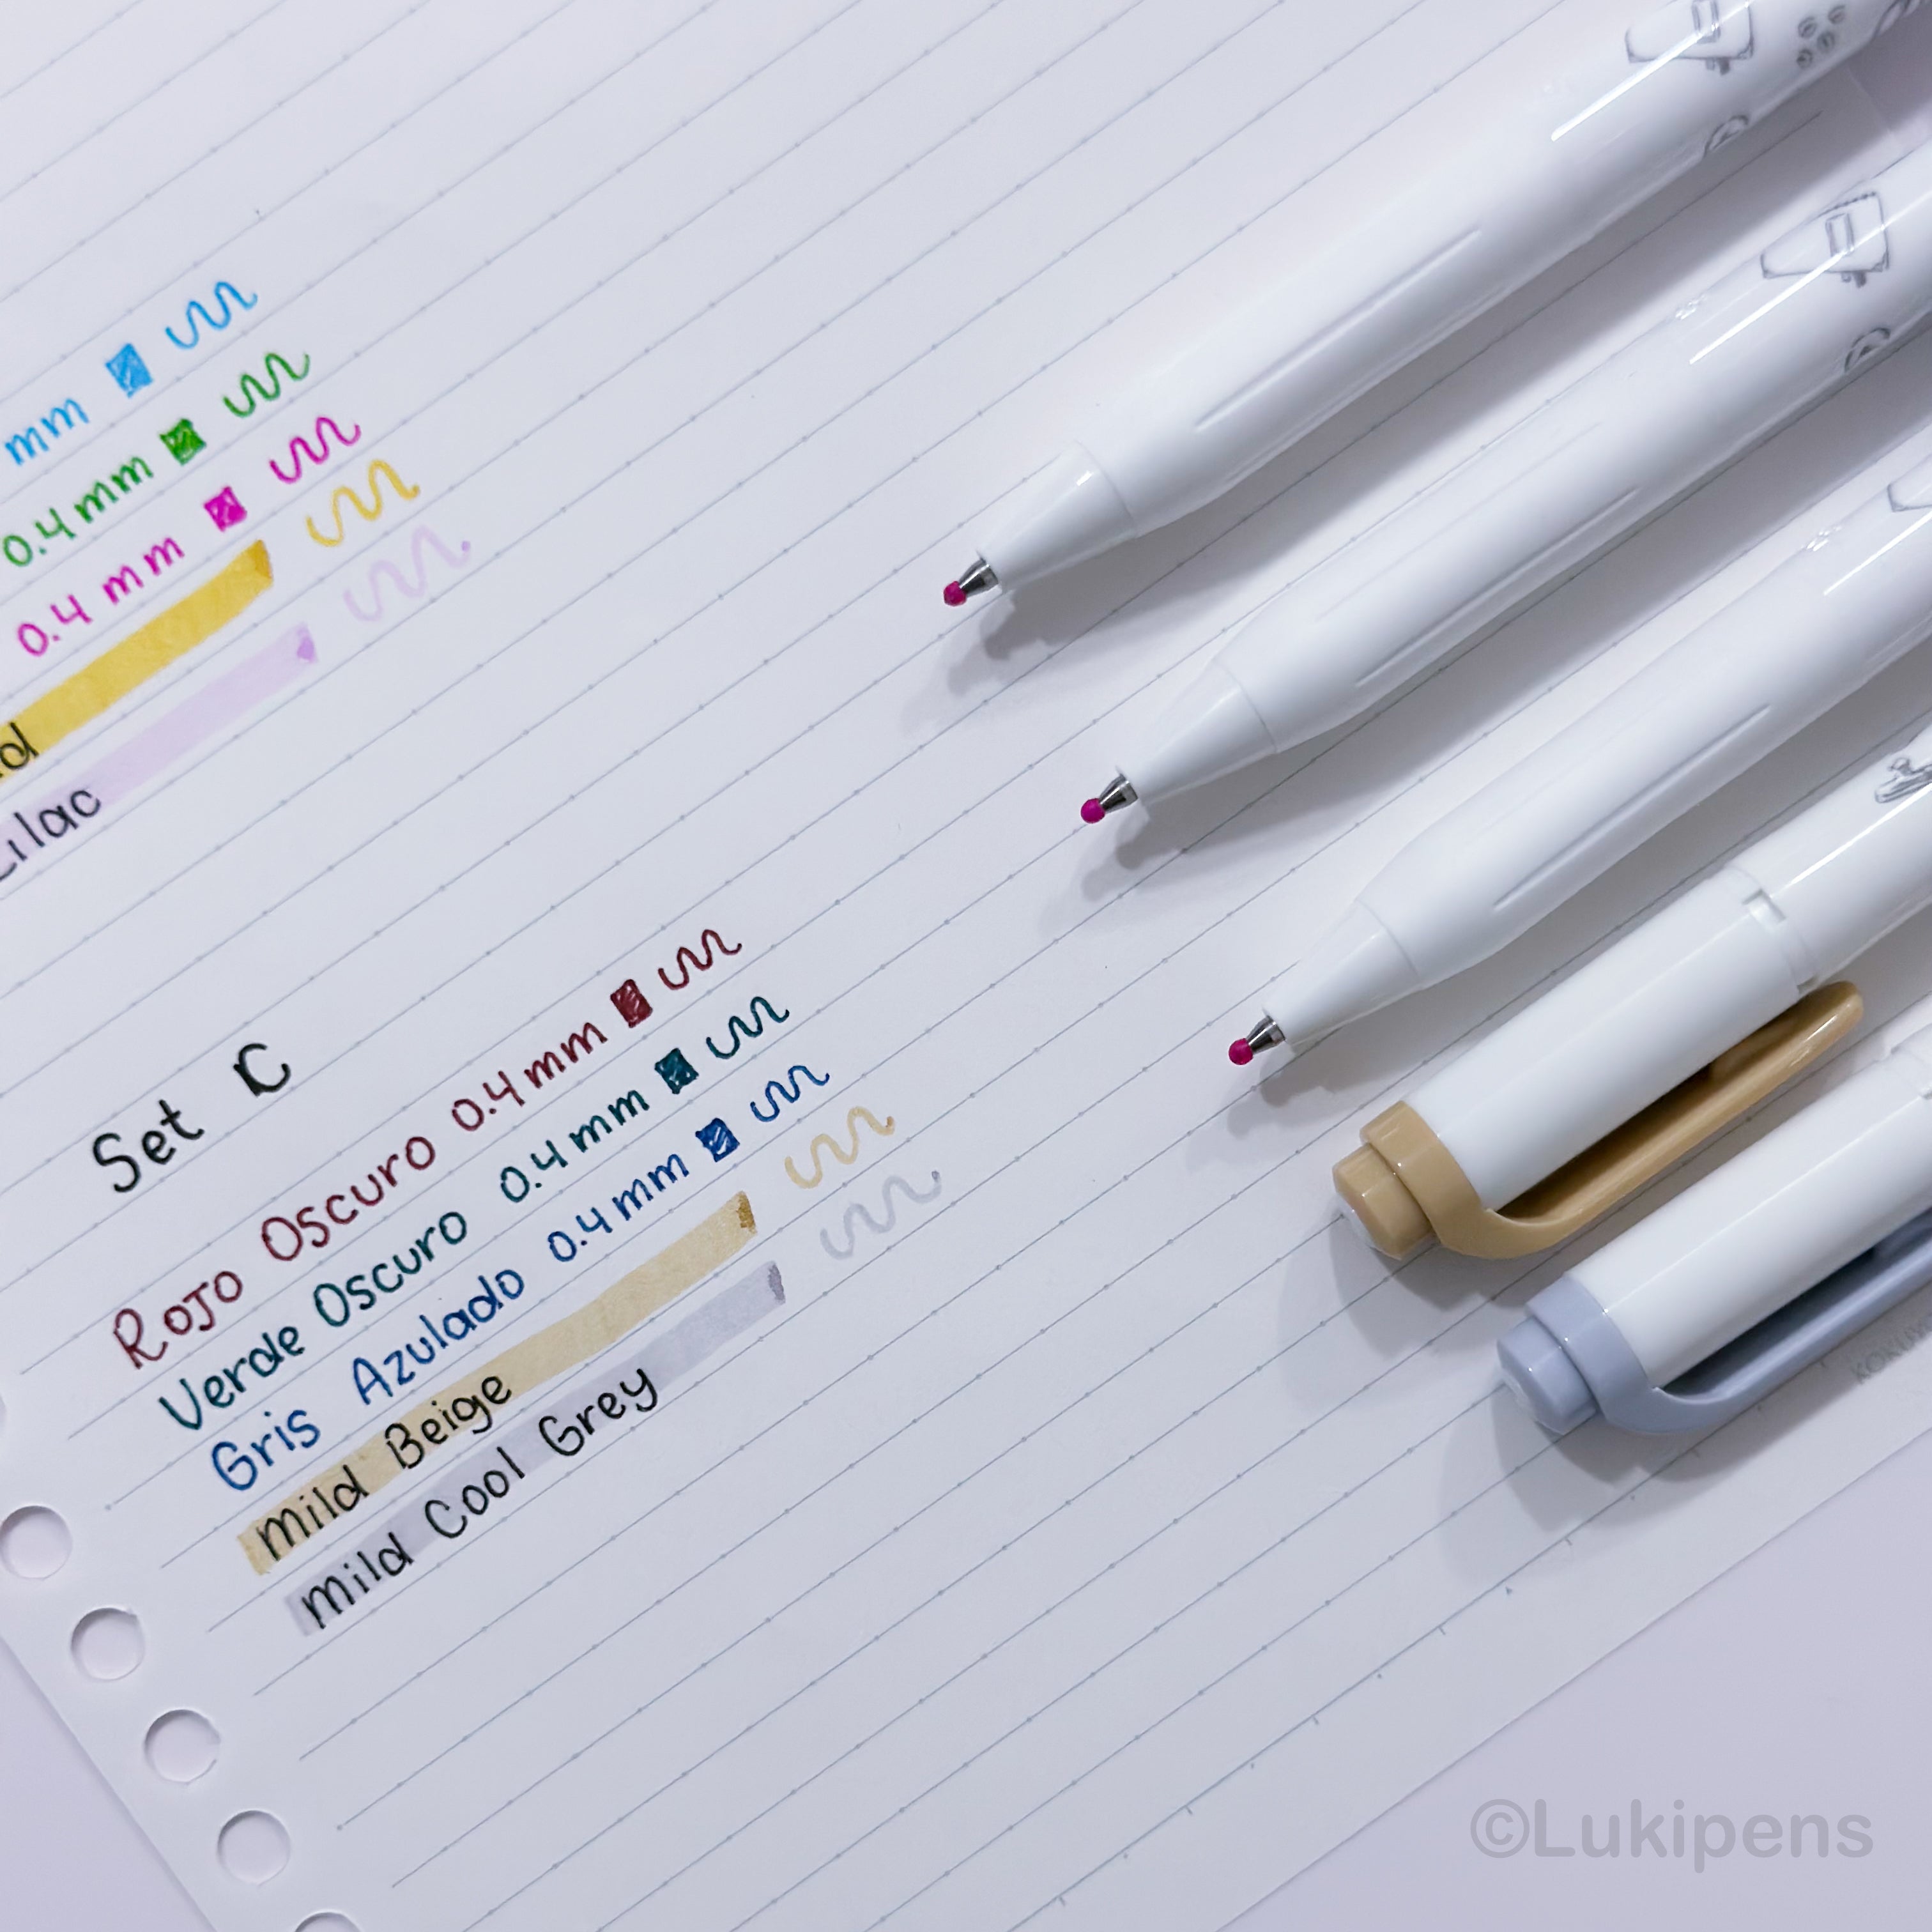 mm
0.4 mm
0.4 mm
Lilac
Set C
Rojo Oscuro 0.4 mm
Verde Oscuro 0.4 mm
Gris Azulado 0.4 mm
Mild Beige
Mild Cool Grey
©Lukipens